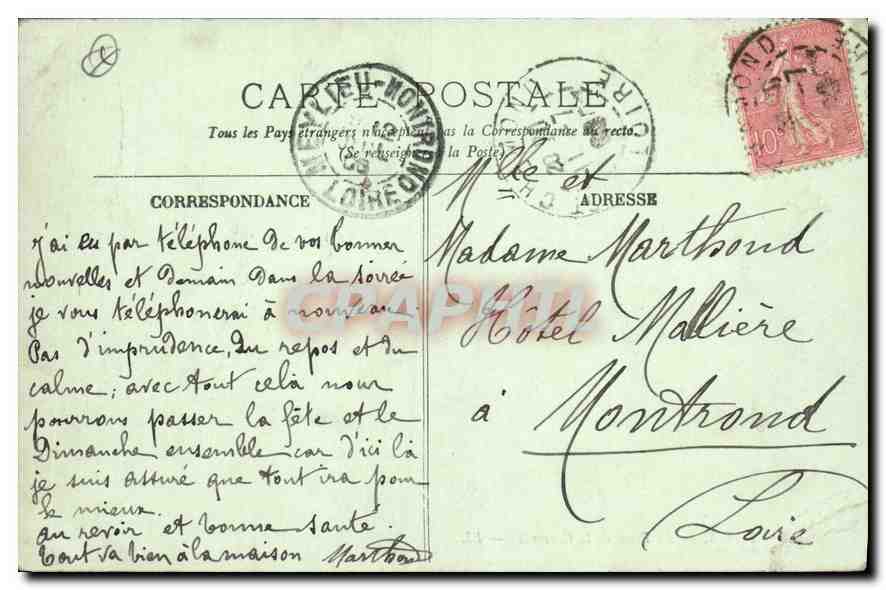 CARTE POSTALE
Tous les Pays étrangers n'acceptent pas la Correspondance au recto.
(Se renseigner à la Poste)
MEYLIEU-MONTROND
LOIRE
LOIRE
10
CORRESPONDANCE
ADRESSE
j'ai eu par téléphone de vos bonnes
nouvelles et demain dans la soirée
je vous téléphonerai à nouveau
Pas d'imprudence, du repos et du
calme; avec tout cela nous
pourrons passer la fête et le
Dimanche ensemble car d'ici là
je suis assuré que tout ira pour
le mieux.
au revoir et bonne santé.
tout va bien à la maison Marthond
Mlle et
Madame Marthond
Hôtel Mallière
à Montrond
Loire
CPAPHIL